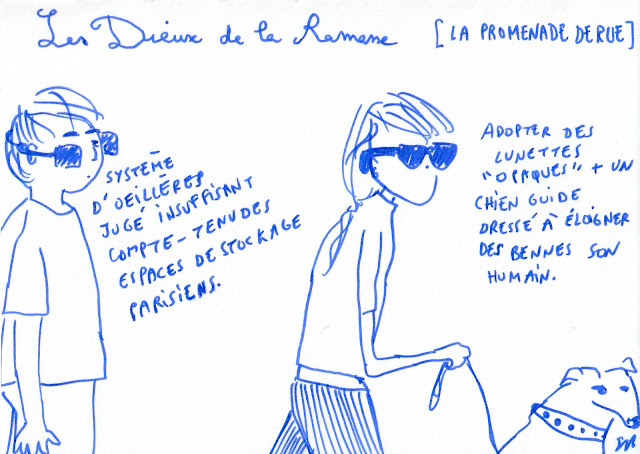 Les Dieux de la Ramasse [LA PROMENADE DE RUE]
SYSTÈME
D'OEILLÈRES
JUGÉ INSUFFISANT
COMPTE-TENU DES
ESPACES DE STOCKAGE
PARISIENS.
ADOPTER DES
LUNETTES
"OPAQUES" + UN
CHIEN GUIDE
DRESSÉ À ÉLOIGNER
DES BENNES SON
HUMAIN.